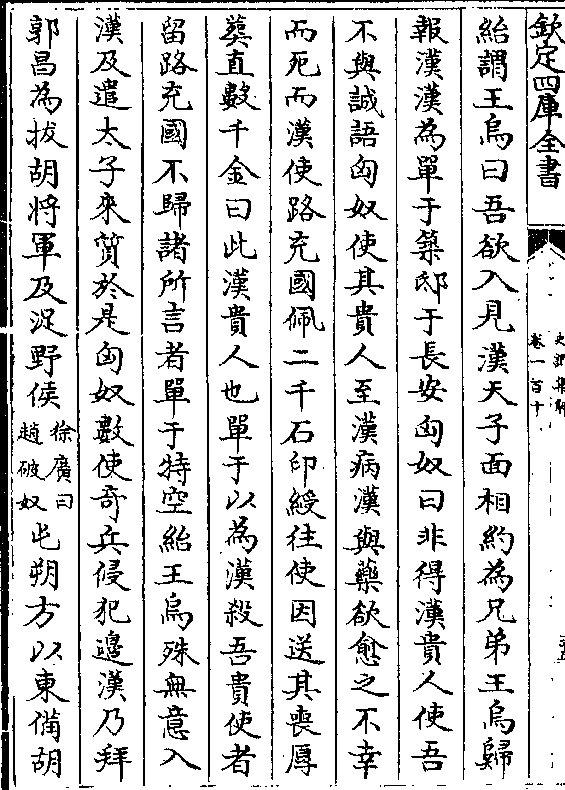 欽定四庫全書
史記集解
卷一百十
紿謂王烏曰吾欲入見漢天子面相約為兄弟王烏歸
報漢漢為單于築邸于長安匈奴曰非得漢貴人使吾
不與誠語匈奴使其貴人至漢病漢與藥欲愈之不幸
而死而漢使路充國佩二千石印綬往使因送其喪厚
葬直數千金曰此漢貴人也單于以為漢殺吾貴使者
留路充國不歸諸所言者單于特空紿王烏殊無意入
漢及遣太子來質於是匈奴數使奇兵侵犯邊漢乃拜
郭昌為拔胡將軍及浞野侯徐廣曰趙破奴屯朔方以東備胡